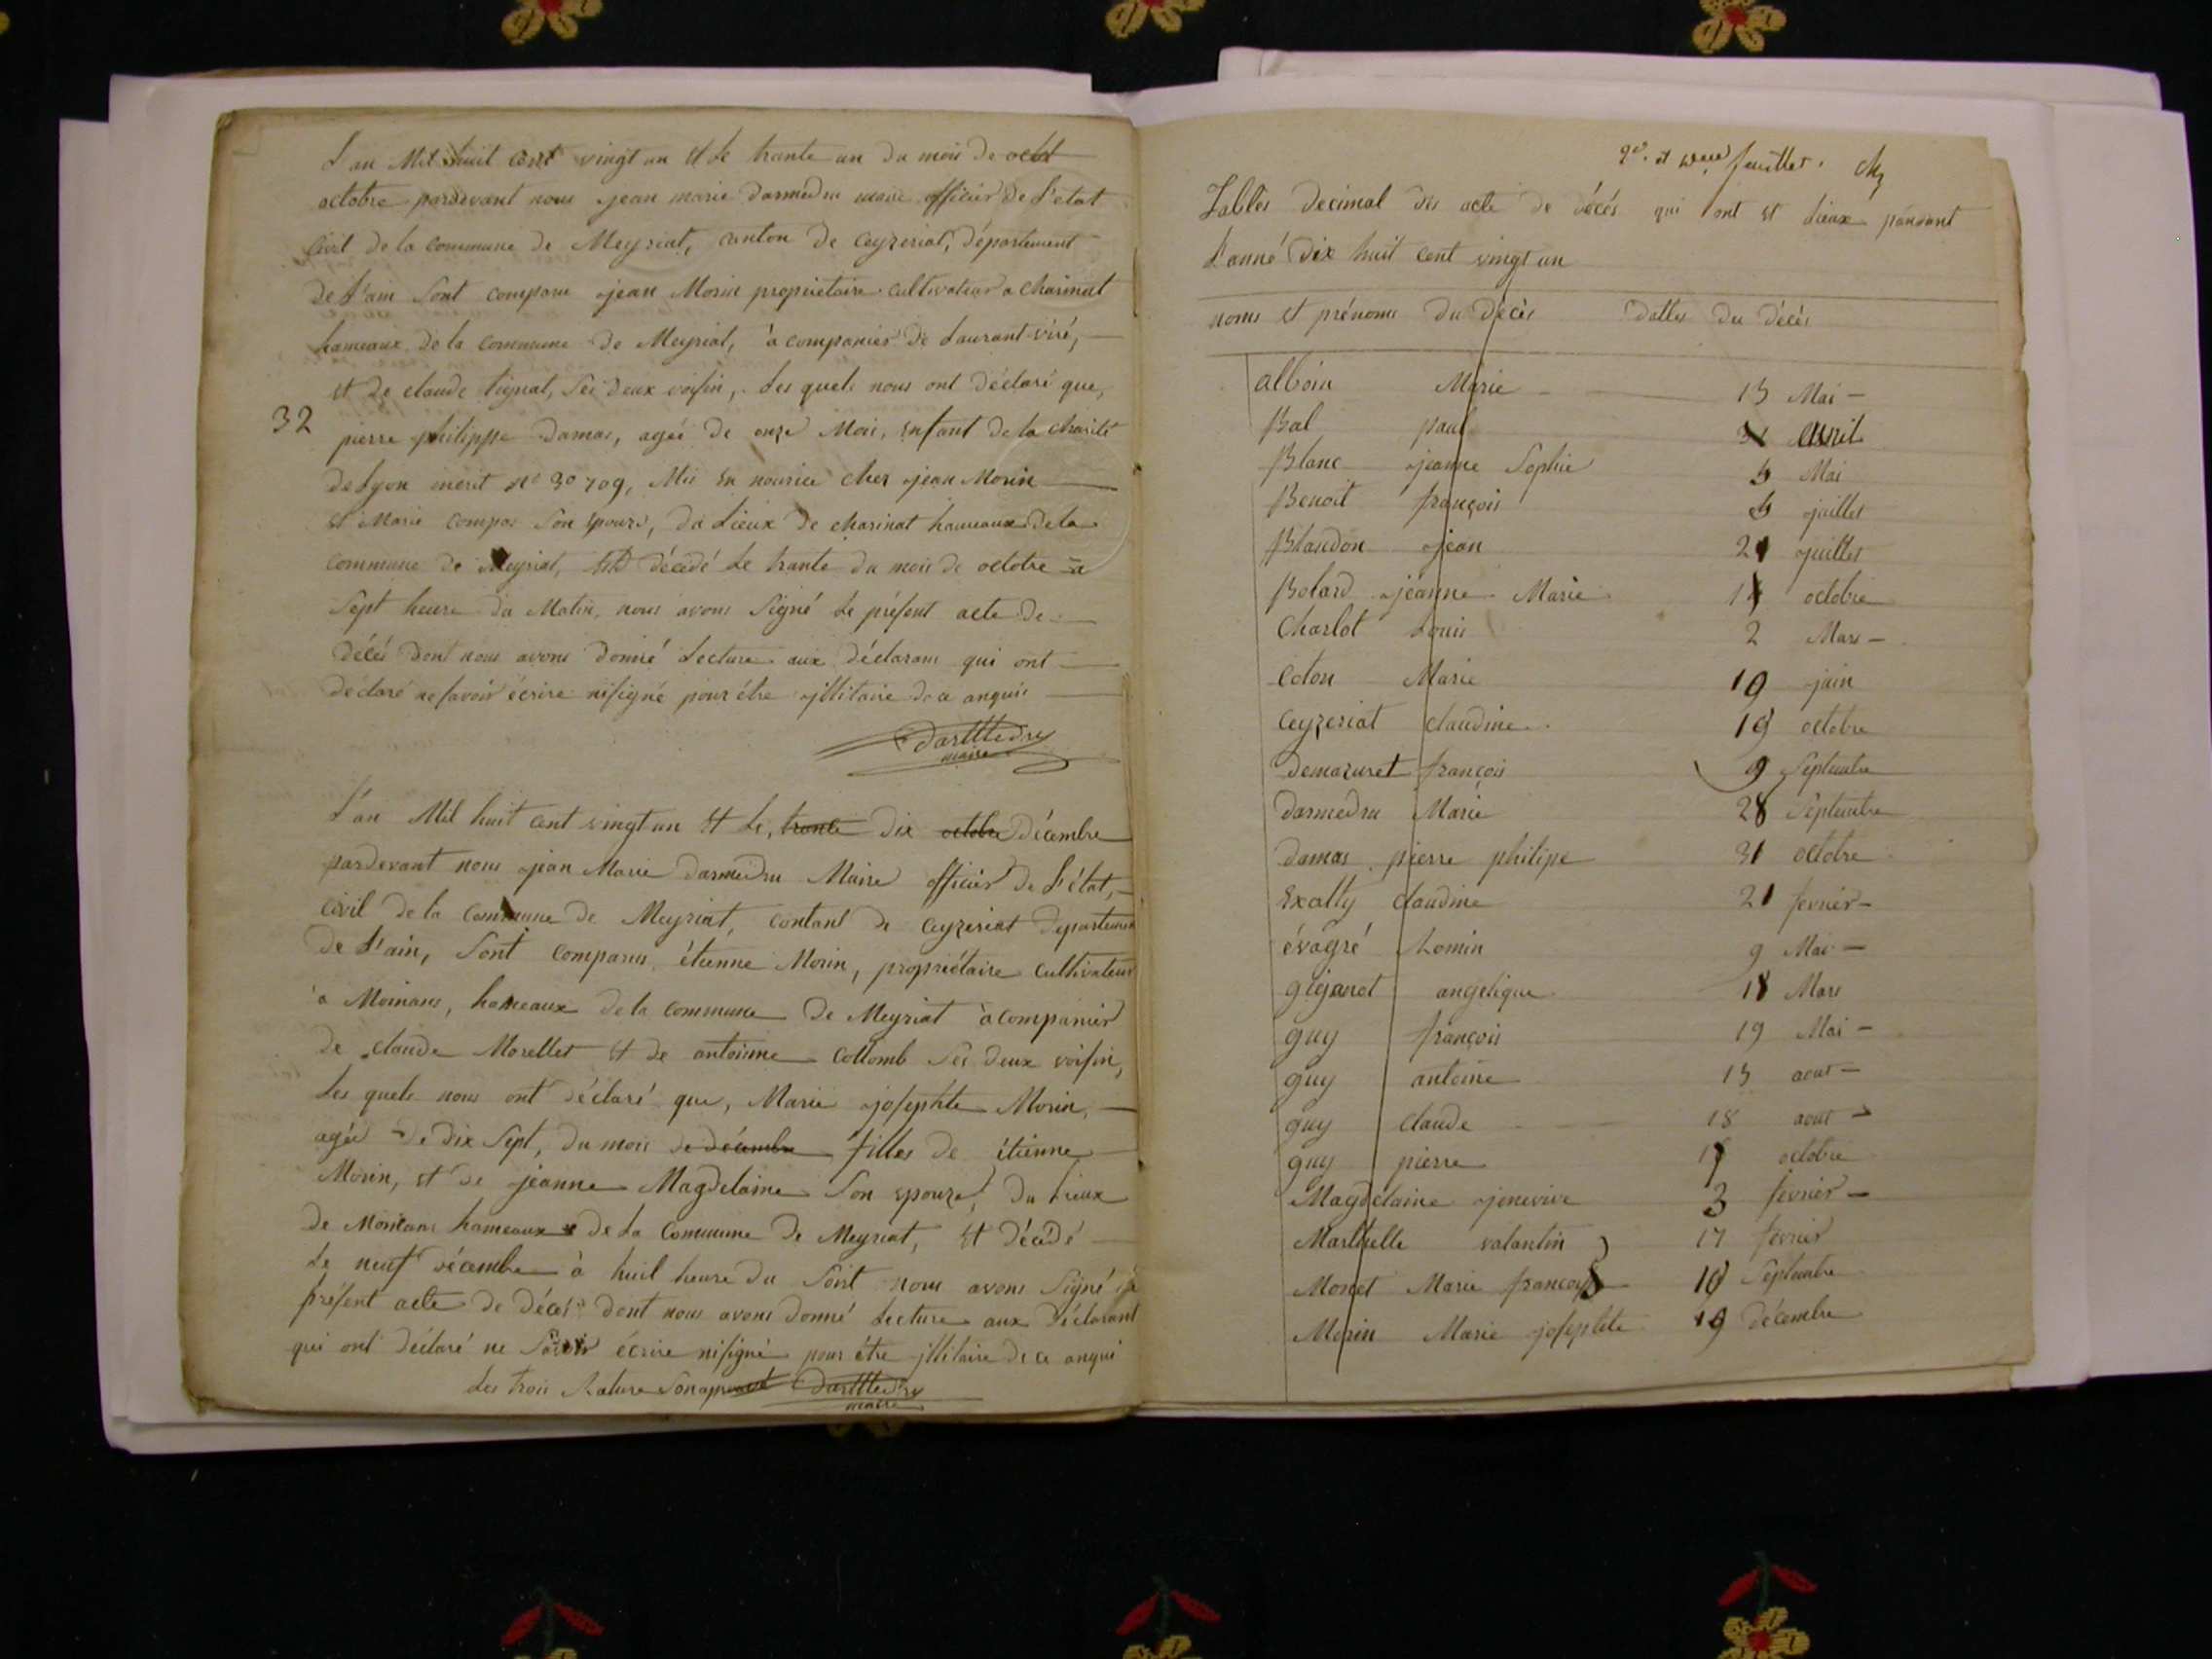 L'an Mil huit cent vingt un et le trante un du mois de octo
octobre pardevant nous jean marie darmedru maire officier de l'etat
Civil de la commune de Meyriat, canton de Ceyzeriat, département
de L'ain sont comparu jean Morin propriétaire cultivateur a charinat
hameaux de la commune de Meyriat, à companier de Laurant viré,
et de claude tignat, ses deux voisin, Les quels nous ont déclaré que,
32
pierre philippe damas, agée de onze Mois, enfant de la charité
de Lyon inérit n° 30709, Mis en nourice cher jean Morin
et Marie compas son épouze, du Lieux de charinat hameaux de la
commune de Meyriat, est décédé Le trante du mois de octobre à
Sept heure du Matin, nous avons Signé Le présent acte de
décés dont nous avons donné Lecture aux déclarans qui ont
déclaré ne savoir écrire ni signé pour être illitaire de ce anquis
Darmedru
maire
L'an Mil huit cent vingt un et Le, trante dix octobre décembre
pardevant nous jean Marie darmedru Maire officier de L'état,
civil de la commune de Meyriat, contant de Ceyzeriat departement
de L'ain, sont comparus étienne Morin, propriétaire cultivateur
à Moinans, hameaux de la commune de Meyriat àcompanier
de claude Morellet et de antoinne Collomb ses deux voisin,
Les quels nous ont déclaré que, Marie josephte Morin,
agée de dix Sept, du mois de décembre filles de étienne
Morin, et de jeanne Magdelaine Son epouze, du Lieux
de Moinans hameaux de La Commune de Meyriat, et décédé
Le neuf décembre à huil heure du Soirt nous avons Signé le
présent acte de décés dont nous avons donné Lecture aux déclarant
qui ont déclaré ne Savoir écrire ni signé pour être illitaire de ce anqui
Les trois Rature Son aprouvé Darmedru
maire
feuillet.
Tables Decimal des acte de décés qui ont et Lieux pandant
L'anné dix huit cent vingt un
noms et prénoms du décès Dattes du décès
alboin Marie 13 Mai
Bal paul avril
Blanc jeanne Sophie 5 Mai
Benoit françois 5 juillet
Blandon jean 21 juillet
Bolard jeanne Marie 14 octobre
Charlot Louis 2 Mars
Coton Marie 19 juin
Ceyzeriat claudine 19 octobre
Demazuret françois 9 Septembre
Darmedru Marie 28 Septembre
damas pierre philipe 31 octobre
Exally claudine 21 fevrier
évagré Lomin 9 Mai
gijanot angelique 18 Mars
guy françois 19 Mai
guy antoine 13 aout
guy claude 18 aout
guy pierre 17 octobre
Magdelaine jenevive 3 fevrier
Marthelle valantin 17 fevrier
Moret Marie françoise 18 Septembre
Morin Marie josephte 19 décembre